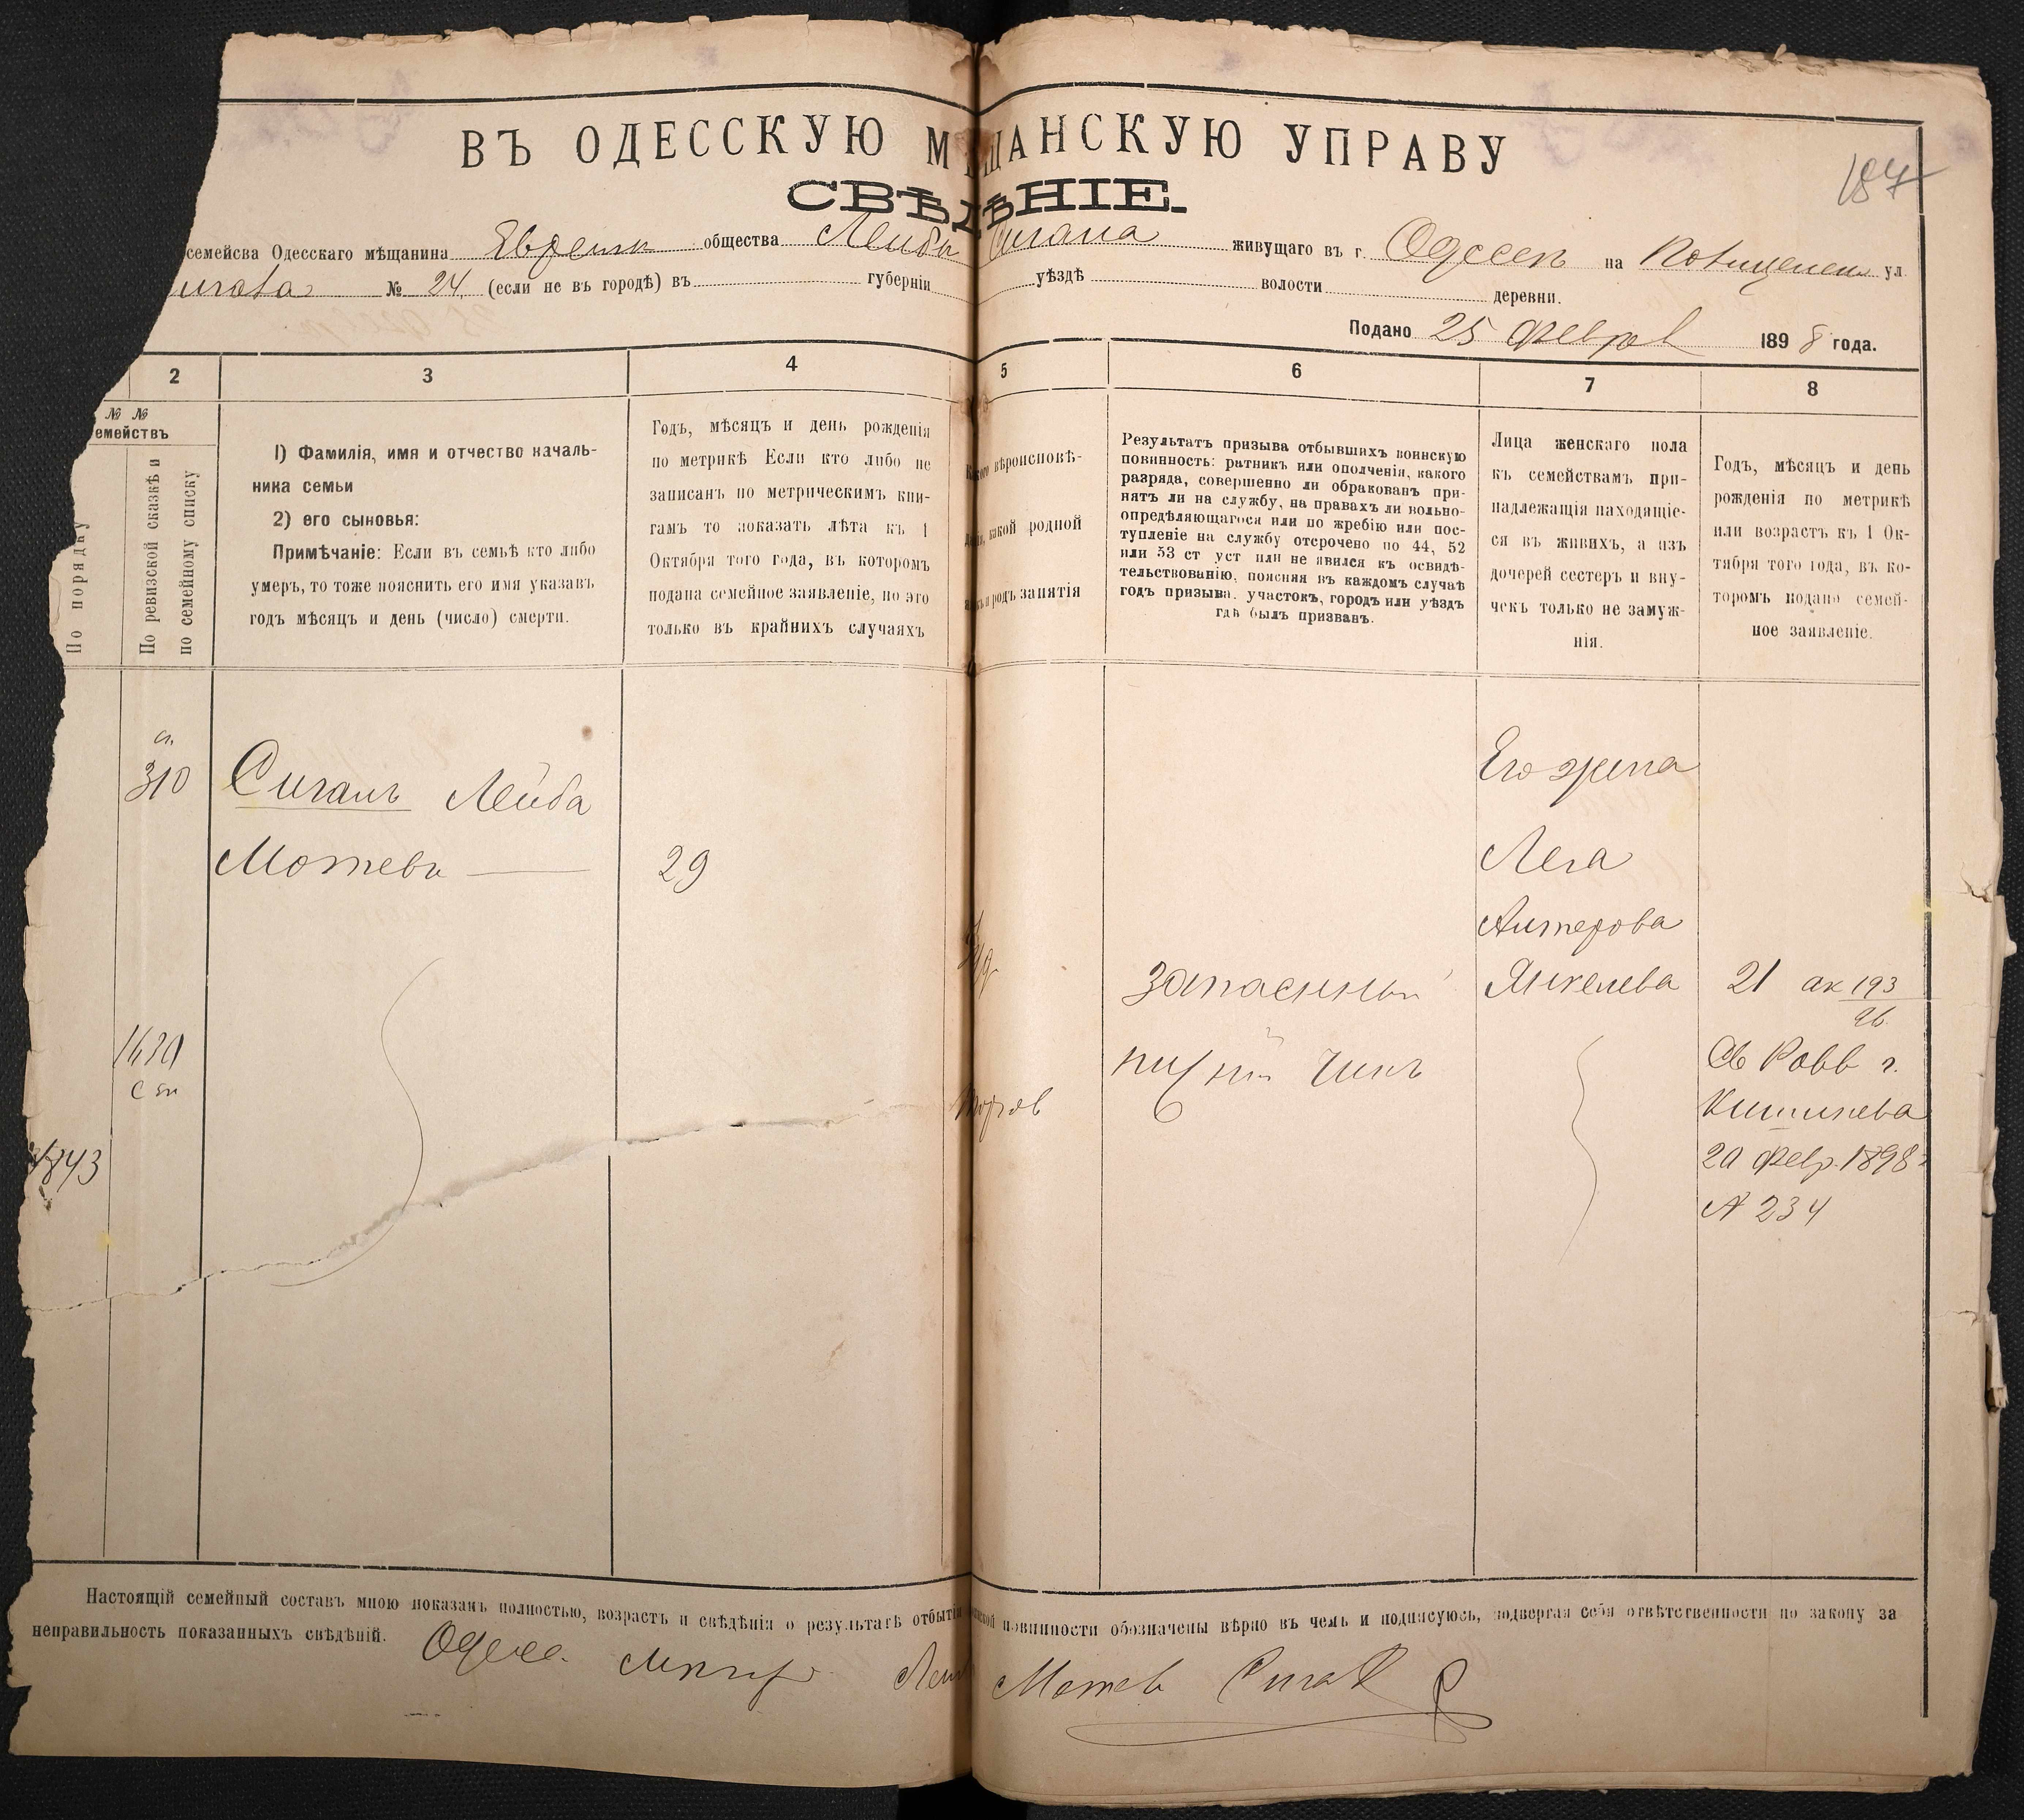 187
ВЪ ОДЕССКУЮ М ЩАНСКУЮ УПРАВУ
СВѢДѢНІЕ.
семейсва Одесскаго мѣщанина Евреиск общества Лейбы Сигала живущаго въ г. Одессѣ на ул.
№ 24 (если не въ городѣ) въ губерніи уѣздѣ волости деревни.
Подано 25 Феврал 1898 года.
2 3 4 5 6 7 8
№ №
емействъ
По порядку
По ревизской сказкѣ и
по семейному списку
1) Фамилія, имя и отчество началь-
ника семьи
2) его сыновья:
Примѣчаніе: Если въ семьѣ кто либо
умеръ, то тоже пояснить его имя указавъ
годъ мѣсяцъ и день (число) смерти.
Годъ, мѣсяцъ и день рожденія
по метрикѣ Если кто либо не
записанъ по метрическимъ кни-
гамъ то показать лѣта къ 1
Октября того года, въ которомъ
подана семейное заявленіе, но это
только въ крайнихъ случаяхъ
вѣроисповѣ-
какой родной
родъ занятія
Результатъ призыва отбывшихъ воинскую
повинность: ратникъ или ополченія, какого
разряда, совершенно ли обракованъ при-
нятъ ли на службу, на правахъ ли вольно-
опредѣляющагося или по жребію или пос-
тупленіе на службу отсрочено по 44, 52
или 53 ст уст или не явился къ освидѣ-
тельствованію, поясняя въ каждомъ случаѣ
годъ призыва, участокъ, городъ или уѣздъ
гдѣ былъ призванъ.
Лица женскаго пола
къ семействамъ при-
надлежащія находящіе-
ся въ живихъ, а изъ
дочерей сестеръ и вну-
чекъ только не замуж-
нія.
Годъ, мѣсяцъ и день
рожденія по метрикѣ
или возрастъ къ 1 Ок-
тября того года, въ ко-
торомъ подано семей-
ное заявленіе.
310
Сигалъ Лейба
Мотевъ
29
1843
Іуд
Запасный
нижній Чинъ
Его жена
Лея
Алтерова
Янкелева
21 ак 193
96
Св Равв г.
Кишинева
20 Февр. 1898 г
№ 234
Настоящій семейный составъ мною показанъ полностью, возрастъ и свѣдѣнія о результатѣ отбытія повинности обозначены вѣрно въ чемъ и подписуюсь, подвергая себя отвѣтственности по закону за
неправильность показанныхъ свѣдѣній.
Одесс. Мотев Сигал